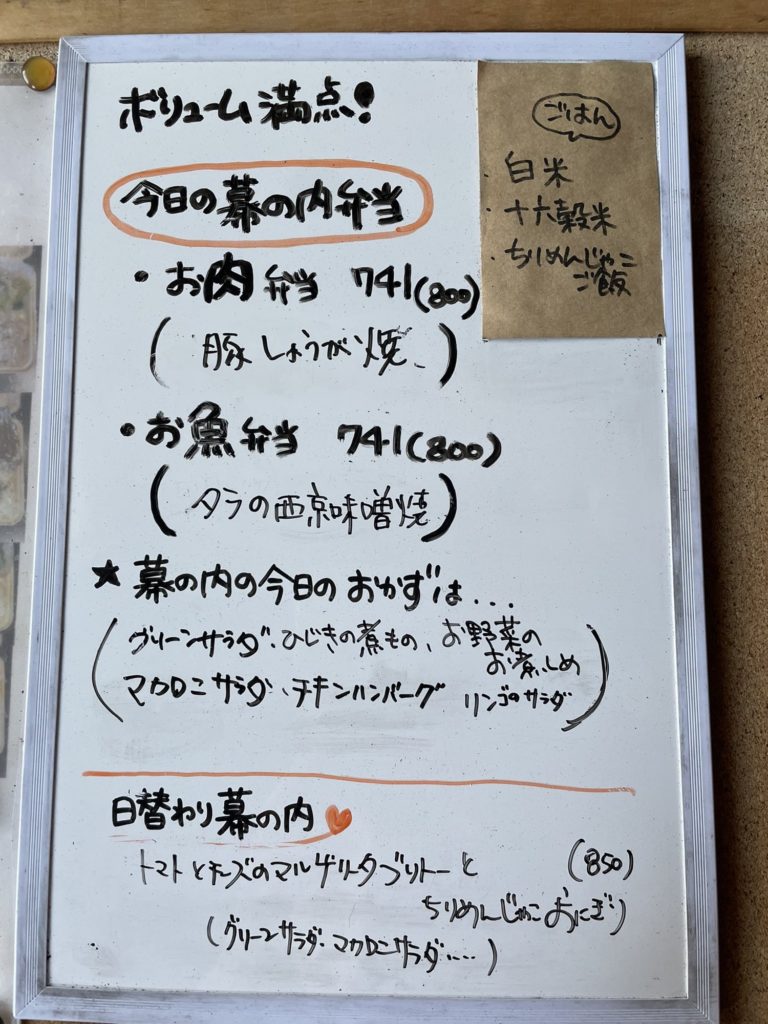 ボリューム満点!
ごはん
・白米
・十六穀米
・ちりめんじゃこ
ご飯
今日の幕の内弁当
・お肉弁当 741(800)
(豚しょうが焼)
・お魚弁当 741(800)
(タラの西京味噌焼)
★幕の内の今日のおかずは...
(グリーンサラダ、ひじきの煮もの、お野菜の
お煮しめ
マカロニサラダ、チキンハンバーグ リンゴのサラダ)
日替わり幕の内
トマトとチーズのマルゲリータブリトーと (850)
ちりめんじゃこおにぎり
(グリーンサラダ・マカロニサラダ....)